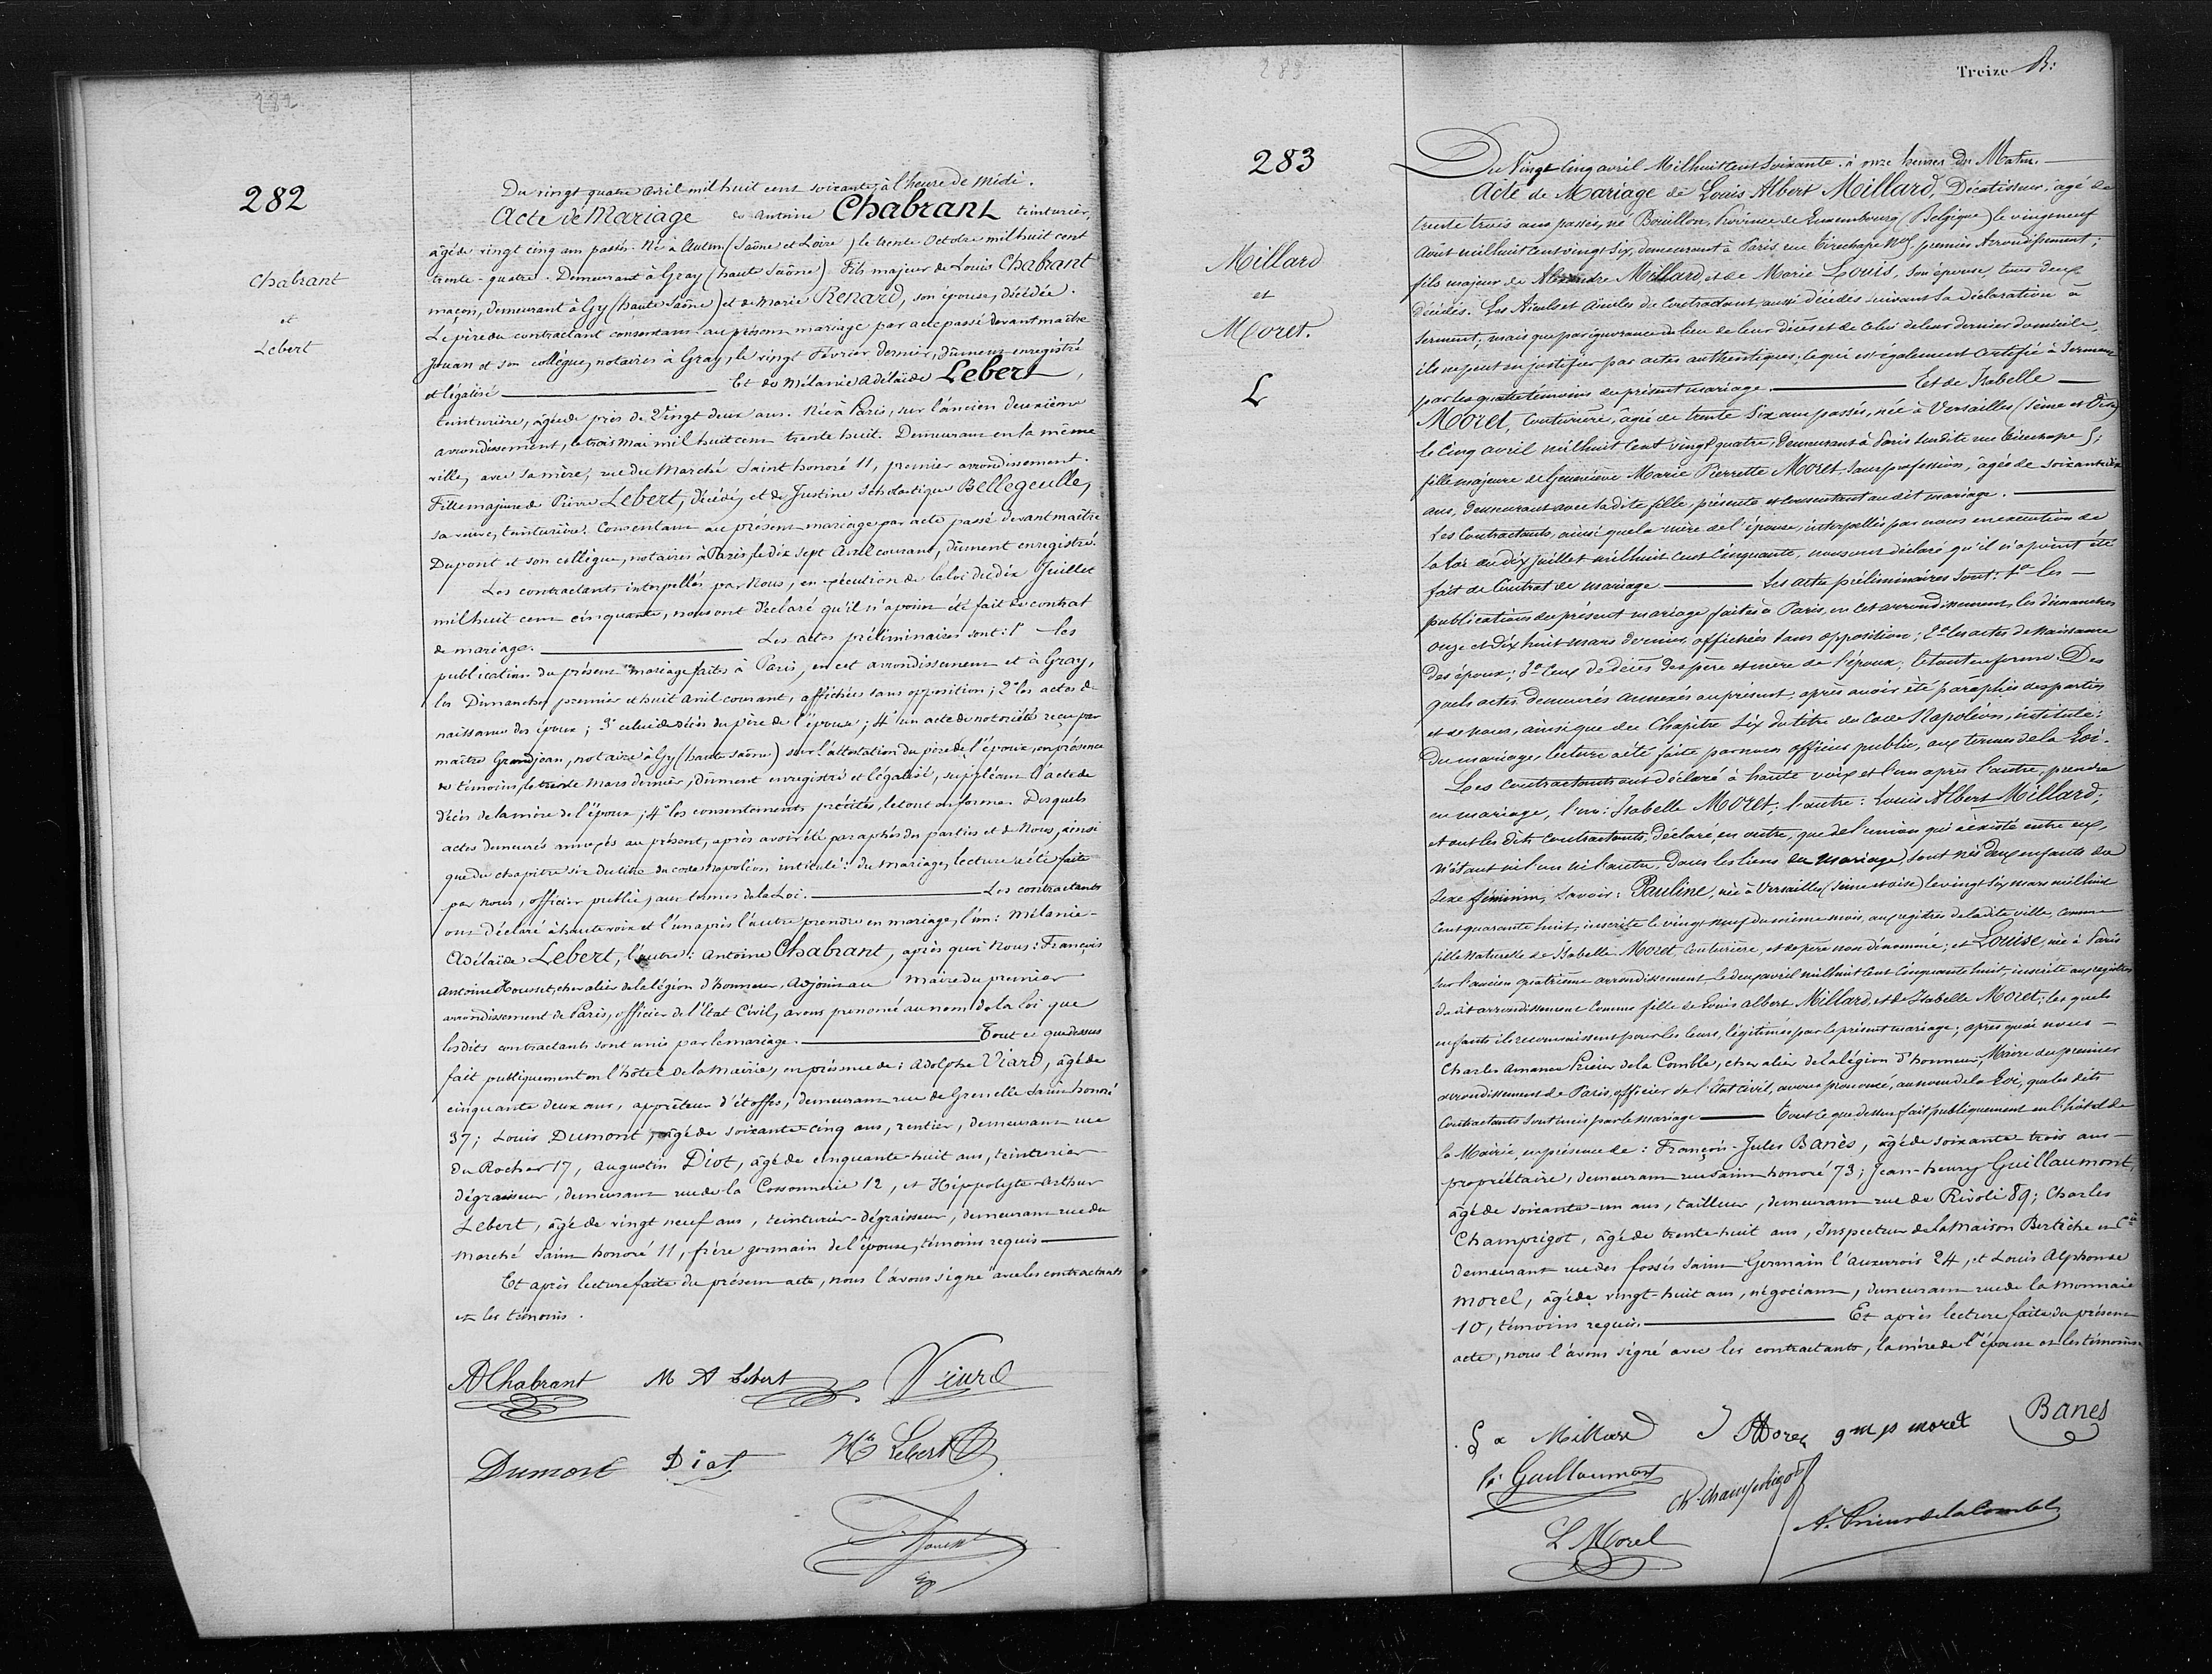 282
282
Chabrant
et
Lebert
Du vingt quatre avril mil huit cent soixante, à l'heure de Midi.
Acte de Mariage de Antoine Chabrant teinturier,
âgé de vingt cinq ans passés. Né à Autun (Saône et Loire) le trente Octobre mil huit cent
trente-quatre. Demeurant à Gray (haute Saône) Fils majeur de Louis Chabrant
maçon, demeurant à Gy (haute Saône) et de Marie Renard, son épouse, décédée.
Le père du contractant consentant au présent mariage par acte passé devant maître
Jouan et son collègue, notaires à Gray, le vingt Février dernier, dûment enregistré
et légalisé Et de Mélanie Adélaïde Lebert,
teinturière, âgée de près de Vingt deux ans. Née à Paris, sur l'ancien deuxième
arrondissement, le trois Mai mil huit cent trente huit. Demeurant en la même
ville, avec sa mère, rue du Marché Saint honoré 11, premier arrondissement.
Fille majeure de Pierre Lebert, décédé, et de Justine Scholastique Bellegeulle,
sa veuve, teinturière. Consentant au présent mariage par acte passé devant maître
Dupont et son collègue, notaires à Paris, le dix sept Avril courant, dûment enregistré.
Les contractants interpellés par Nous, en exécution de la loi du dix Juillet
mil huit cent cinquante, nous ont déclaré qu'il n'a point été fait de contrat
de mariage. Les actes préliminaires sont: 1° les
publications du présent mariage faites à Paris, en cet arrondissement et à Gray,
les Dimanches premier et huit avril courant, affichées sans opposition; 2° les actes de
naissance des époux; 3° celui de décès du père de l'épouse; 4° un acte de notoriété reçu par
maître Grandjean, notaire à Gy (haute Saône) sur l'attestation du père de l'époux, en présence
de témoins, le trente Mars dernier, dûment enregistré et légalisé, suppléant l'acte de
décès de la mère de l'époux; 4° les consentements précités, le tout en forme. Desquels
actes demeurés annexés au présent, après avoir été paraphés des parties et de Nous, ainsi
que du chapitre six du titre du code Napoléon intitulé: du mariage, lecture a été faite
par nous, officier public, aux termes de la Loi. Les contractants
ont déclaré à haute voix et l'un après l'autre prendre en mariage, l'un: Mélanie-
Adélaïde Lebert, l'autre: Antoine Chabrant, après quoi Nous: François
Antoine Housset, chevalier de la légion d'honneur, Adjoint au Maire du premier
arrondissement de Paris, officier de l'Etat Civil, avons prononcé au nom de la loi que
lesdits contractants sont unis par le mariage. Tout ce que dessus
fait publiquement en l'hôtel de la Mairie, en présence de: Adolphe Viard, âgé de
cinquante deux ans, apprêteur d'étoffes, demeurant rue de Grenelle Saint honoré
37; Louis Dumont, âgé de soixante-cinq ans, rentier, demeurant rue
du Rocher 17, Augustin Diot, âgé de cinquante huit ans, teinturier
dégraisseur, demeurant rue de la Cossonnerie 12, et Hippolyte Arthur
Lebert, âgé de vingt neuf ans, teinturier-dégraisseur, demeurant rue du
Marché Saint honoré 11, frère germain de l'épouse, témoins requis
Et après lecture faite du présent acte, nous l'avons signé avec les contractants
et les témoins.
AChabrant M A Lebert Viard
Dumont Diot Hte Lebert
283
Treize
283
Millard
et
Moret.
L
Du Vingt Cinq avril Mil huit Cent Soixante. à onze heures du Matin.
Acte de Mariage de Louis Albert Millard, Décatisseur, âgé de
trente trois ans passés, né Bouillon, Province de Luxembourg (Belgique) le vingt neuf
Août mil huit Cent vingt Six, demeurant à Paris rue Tirechape N° 5, premier Arrondissement;
fils majeur de Alexandre Millard, et de Marie Louis, son épouse, tous deux
décédés. Les Aïeuls et Aïeules du Contractant aussi décédés suivant sa déclaration à
serment; mais que par ignorance du lieu de leur décès et de celui de leur dernier domicile
ils ne peut en justifier par actes authentiques, ce qui est également certifié à serment
par les quatre témoins du présent mariage. Et de Isabelle
Moret, Couturière, âgée de trente six ans passés, née à Versailles (Seine et Oise)
le Cinq avril mil huit Cent vingt quatre, demeurant à Paris susdite rue Tirechape 5;
fille majeure de Geneviève Marie Pierrette Moret, sans profession, âgée de soixante dix
ans, demeurant avec ladite fille, présente et consentant audit mariage.
Les Contractants, ainsi que la mère de l'épouse, interpellés par nous en exécution de
la loi du dix Juillet mil huit Cent Cinquante, nous ont déclaré qu'il n'a point été
fait de Contrat de mariage Les actes préliminaires sont: 1° les
publications du présent mariage faites à Paris, en cet arrondissement, les dimanches
onze et dix huit mars dernier, affichées sans opposition; 2° les actes de Naissance
des époux; 3° Ceux de décès des père et mère de l'époux; le tout en forme. Des
quels actes demeurés annexés au présent, après avoir été paraphés des parties
et de nous, ainsi que du Chapitre Six du titre du Code Napoléon, intitulé:
Du mariage, lecture a été faite par nous officier public, aux termes de la Loi.
Les Contractants ont déclaré à haute voix et l'un après l'autre, prendre
en mariage, l'un: Isabelle Moret; l'autre: Louis Albert Millard;
et ont les dits Contractants, déclaré, en outre, que de l'union qui a existé entre eux,
n'étant ni l'un ni l'autre, dans les liens du mariage, sont nés deux enfants du
sexe féminin, savoir: Pauline, née à Versailles (Seine et oise) le vingt six mars mil huit
Cent quarante huit, inscrite le vingt neuf du même mois, aux registres de ladite ville, comme
fille Naturelle de Isabelle Moret, Couturière, et de père non dénommé; et Louise, née à Paris
sur l'ancien quatrième arrondissement le deux avril mil huit Cent Cinquante huit, inscrite aux registres
dudit arrondissement Comme fille de Louis Albert Millard et de Isabelle Moret; les quels
enfants ils reconnaissent pour les leurs, légitimés par le présent mariage; après quoi nous
Charles Amance Prieur de la Comble, chevalier de la légion d'honneur, Maire du premier
arrondissement de Paris, officier de l'Etat Civil, avons prononcé, au nom de la Loi, que les dits
Contractants sont unis par le mariage Tout ce que dessus fait publiquement en l'hôtel de
la Mairie, en présence de: François-Jules Banès, âgé de soixante-trois ans
propriétaire, demeurant rue Saint honoré 73; Jean-henry Guillaumont,
âgé de soixante-un ans, tailleur, demeurant rue de Rivoli 89; Charles
Champrigot, âgé de trente-huit ans, Inspecteur de la Maison Bertèche et Cie
demeurant rue des fossés Saint Germain l'auxerrois 24, et Louis Alphonse
Morel, âgé de vingt-huit ans, négociant, demeurant rue de la Monnaie
10, témoins requis. Et après lecture faite du présent
acte, nous l'avons signé avec les contractants, la mère de l'épouse et les témoins
L a Millard I Moret g m p moret Banes
Guillaumont Ch. Champrigot
L Morel A. Prieur de la Comble